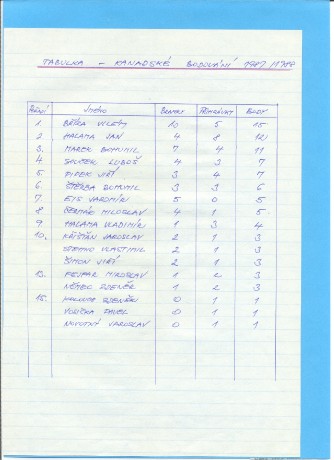 TABULKA - KANADSKÉ BODOVÁNÍ 1987/1988
POŘADÍ JMÉNO BRANKY PŘIHRÁVKY BODY
1. BAŠKA VILÉM 10 5 15
2. HALAMA JAN 4 8 12
3. MAREK BOHUMIL 7 4 11
4. SOUČEK LUBOŠ 4 3 7
5. PIPEK JIŘÍ 3 4 7
6. ŠTĚRBA BOHUMIL 3 3 6
7. EIS JAROMÍR 5 0 5
8. ČERMÁK MILOSLAV 4 1 5
9. HALAMA VLADIMÍR 1 3 4
10. KŘIŠŤÁN JAROSLAV 2 1 3
VLASTIMIL 2 1 3
ŠIMON JIŘÍ 2 1 3
13. FEJFAR MIROSLAV 1 2 3
NĚMEC ZDENĚK 1 2 3
15. ZDENĚK 0 1 1
VODIČKA PAVEL 0 1 1
NOVOTNÝ JAROSLAV 0 1 1